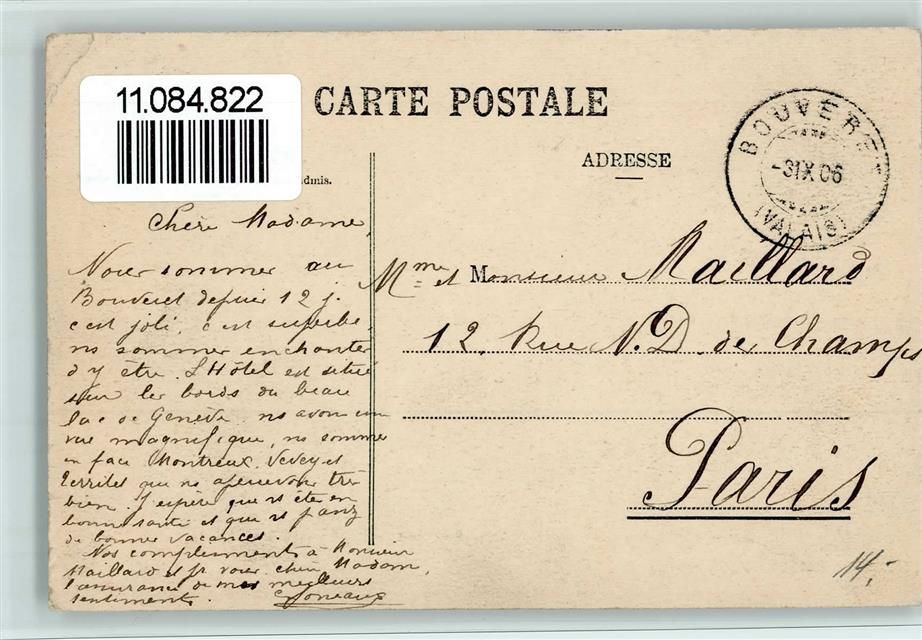 11.084.822
CARTE POSTALE
ADRESSE
BOUVERET
-3IX06
(VALAIS)
dmis.
Chère Madame,
Nous sommes au
Bouveret depuis 12 j.
c'est joli, c'est superbe,
ns sommes enchantés
d'y être. L'Hôtel est situé
sur les bords du beau
lac de Genève. ns avons une
vue magnifique, ns sommes
en face Montreux, Vevey et
Territet que ns apercevons très
bien. J'espère que vs êtes en
bonne santé et que vs passez
de bonnes vacances.
Nos compliments à Monsieur
Maillard et pr vous, chère Madame,
l'assurance de mes meilleurs
sentiments.
Mme et Monsieur Maillard
12, Rue N. D. des Champs
Paris
14.-